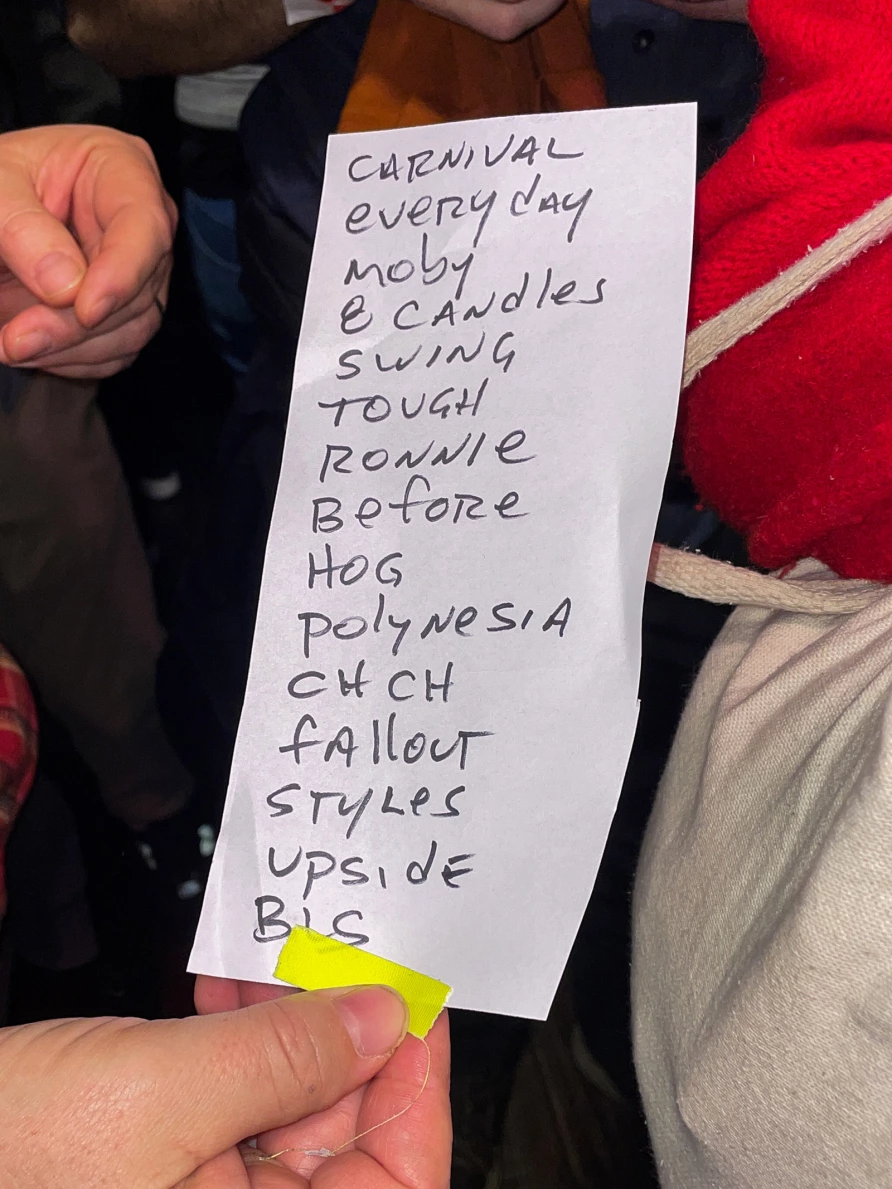 CARNIVAL
everydAy
Moby
8 CANdles
SWING
TOUGH
RONNIe
Before
HOG
PolyNesIA
CH CH
fAlloUT
STYLes
UPSIdE
BLS